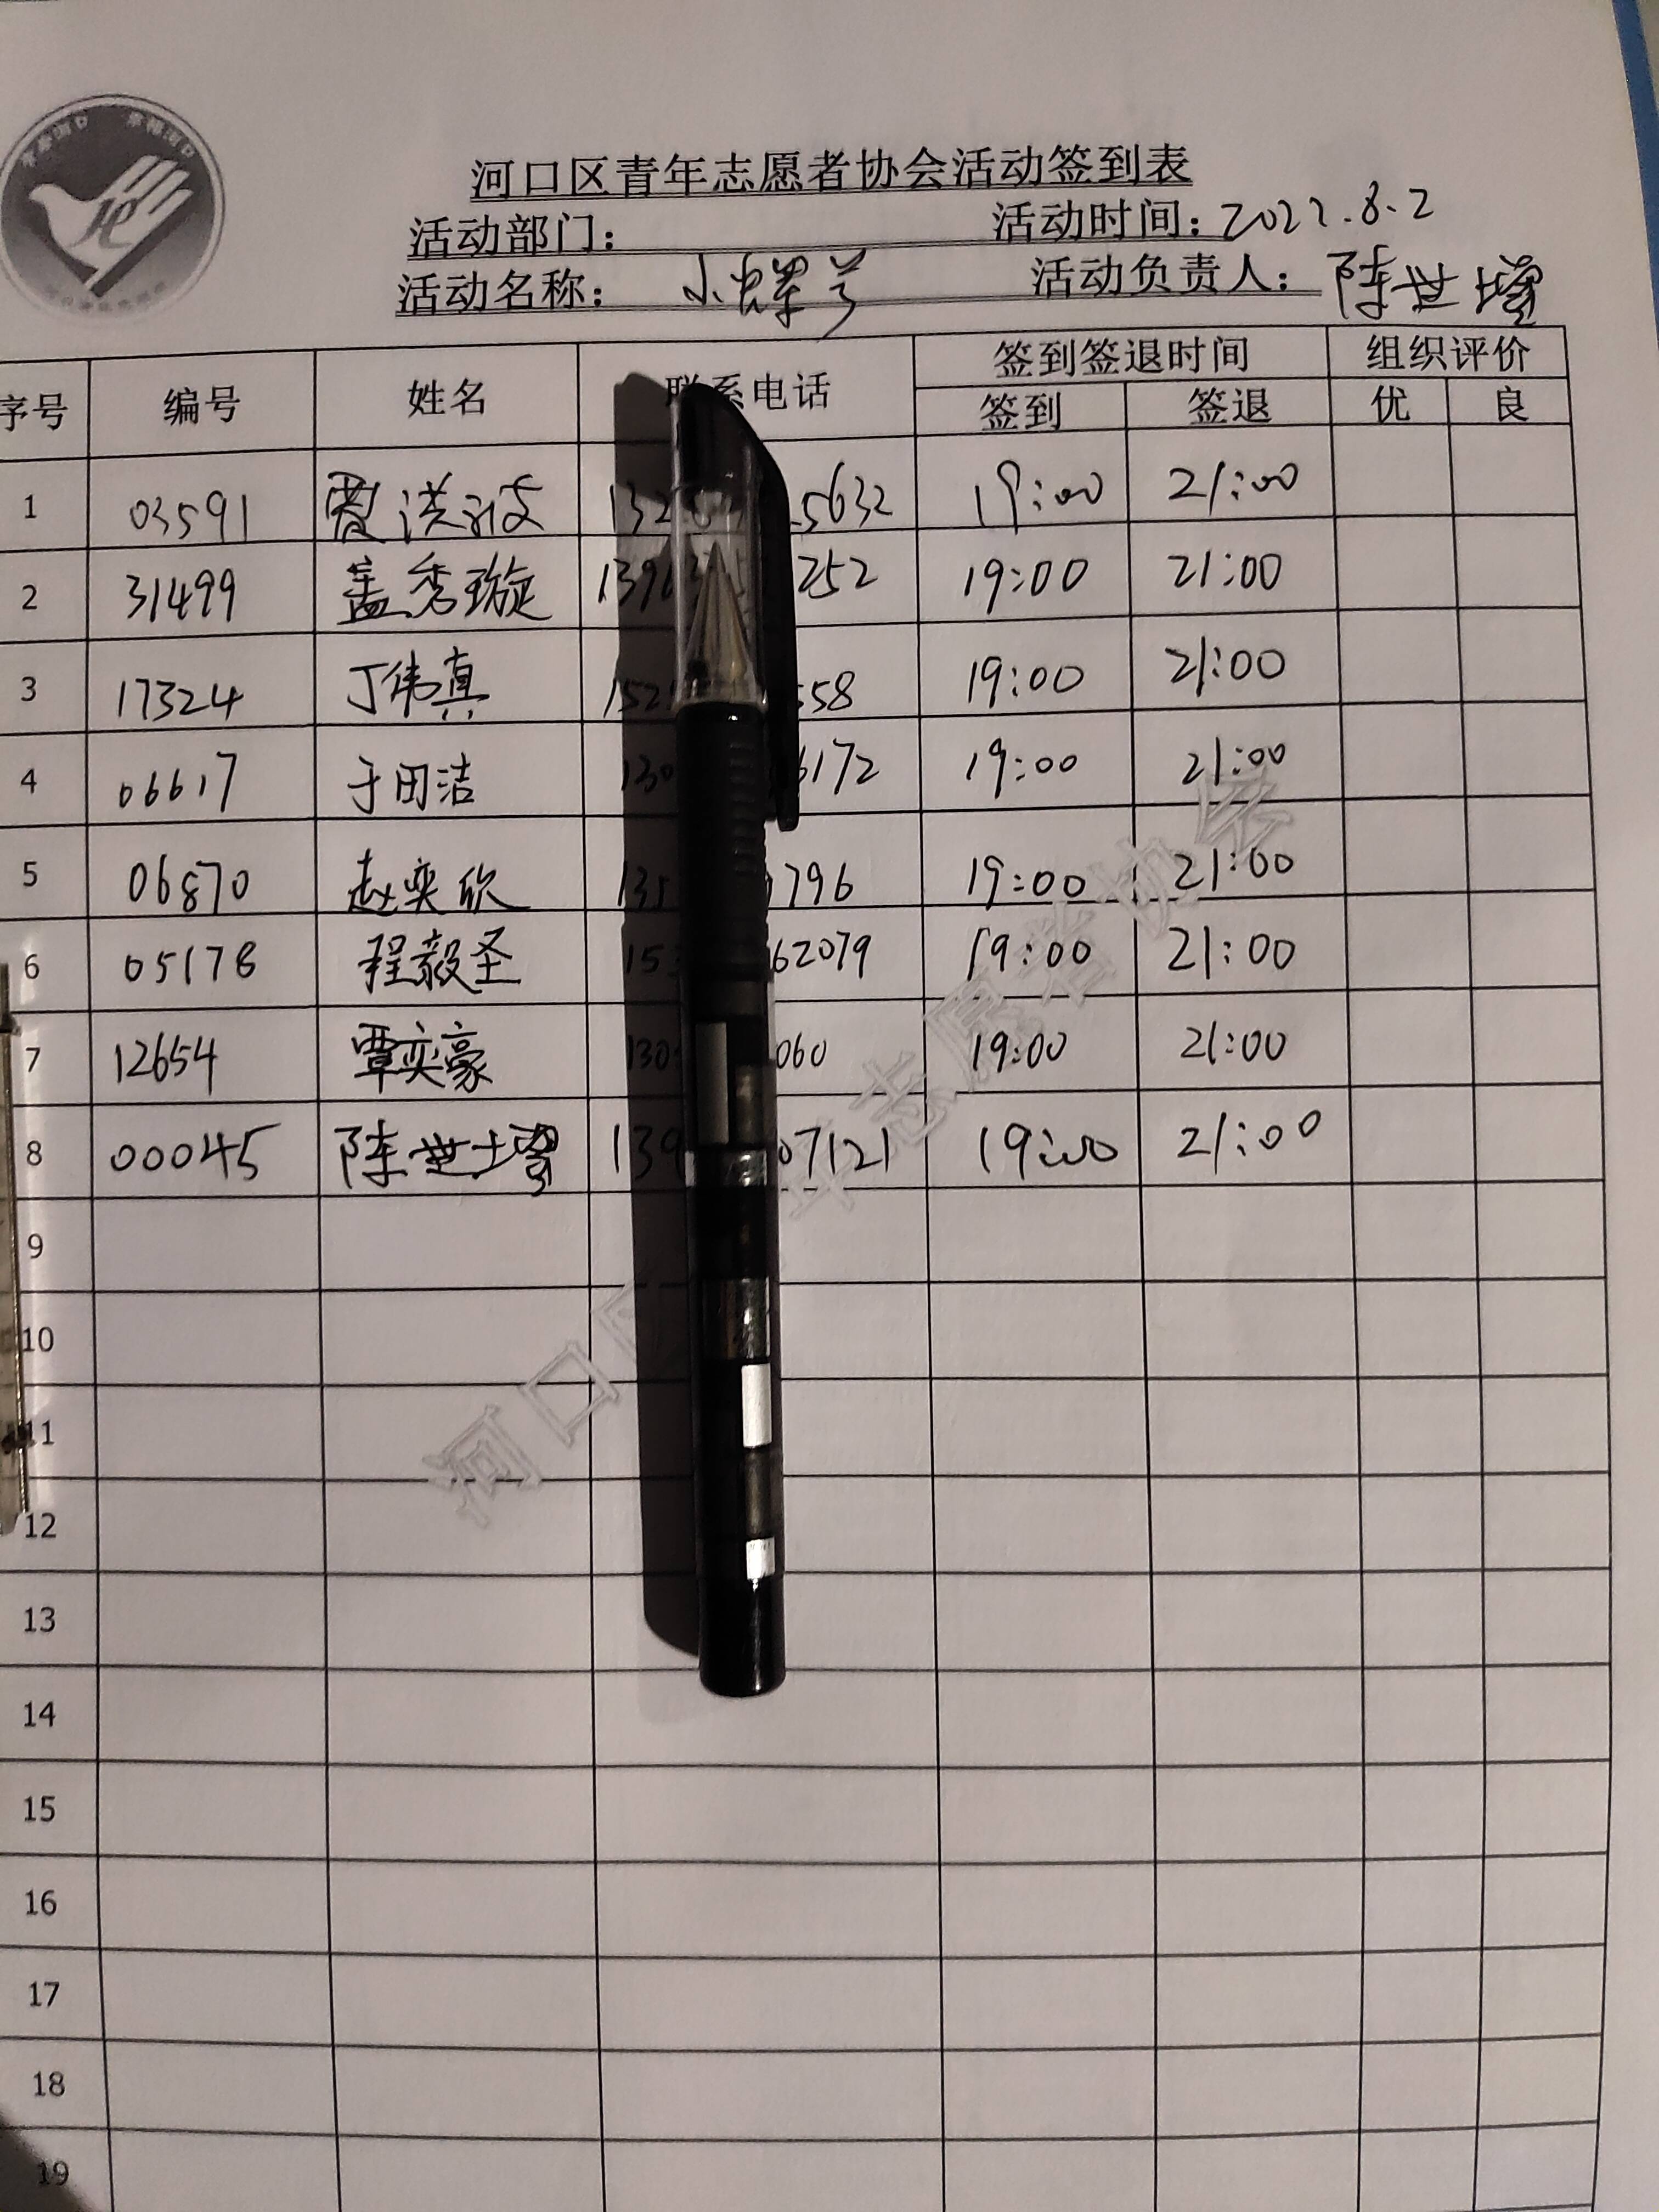 河口区青年志愿者协会活动签到表
活动部门： 活动时间：2022.8.2
活动名称： 活动负责人：陈世
序号 编号 姓名 联系电话 签到签退时间 组织评价
签到 签退 优 良
1 03591 洪波 132 5632 19:00 21:00
2 31499 盖秀璇 1396 252 19:00 21:00
3 17324 丁伟真 152 558 19:00 21:00
4 06617 于田洁 130 6172 19:00 21:00
5 06870 赵奕欣 135 796 19:00 21:00
6 05178 程毅圣 153 62079 19:00 21:00
7 12654 覃奕豪 130 060 19:00 21:00
8 00045 陈世 139 07121 19:00 21:00
9
10
11
12
13
14
15
16
17
18
19
河口区 年志愿者协会